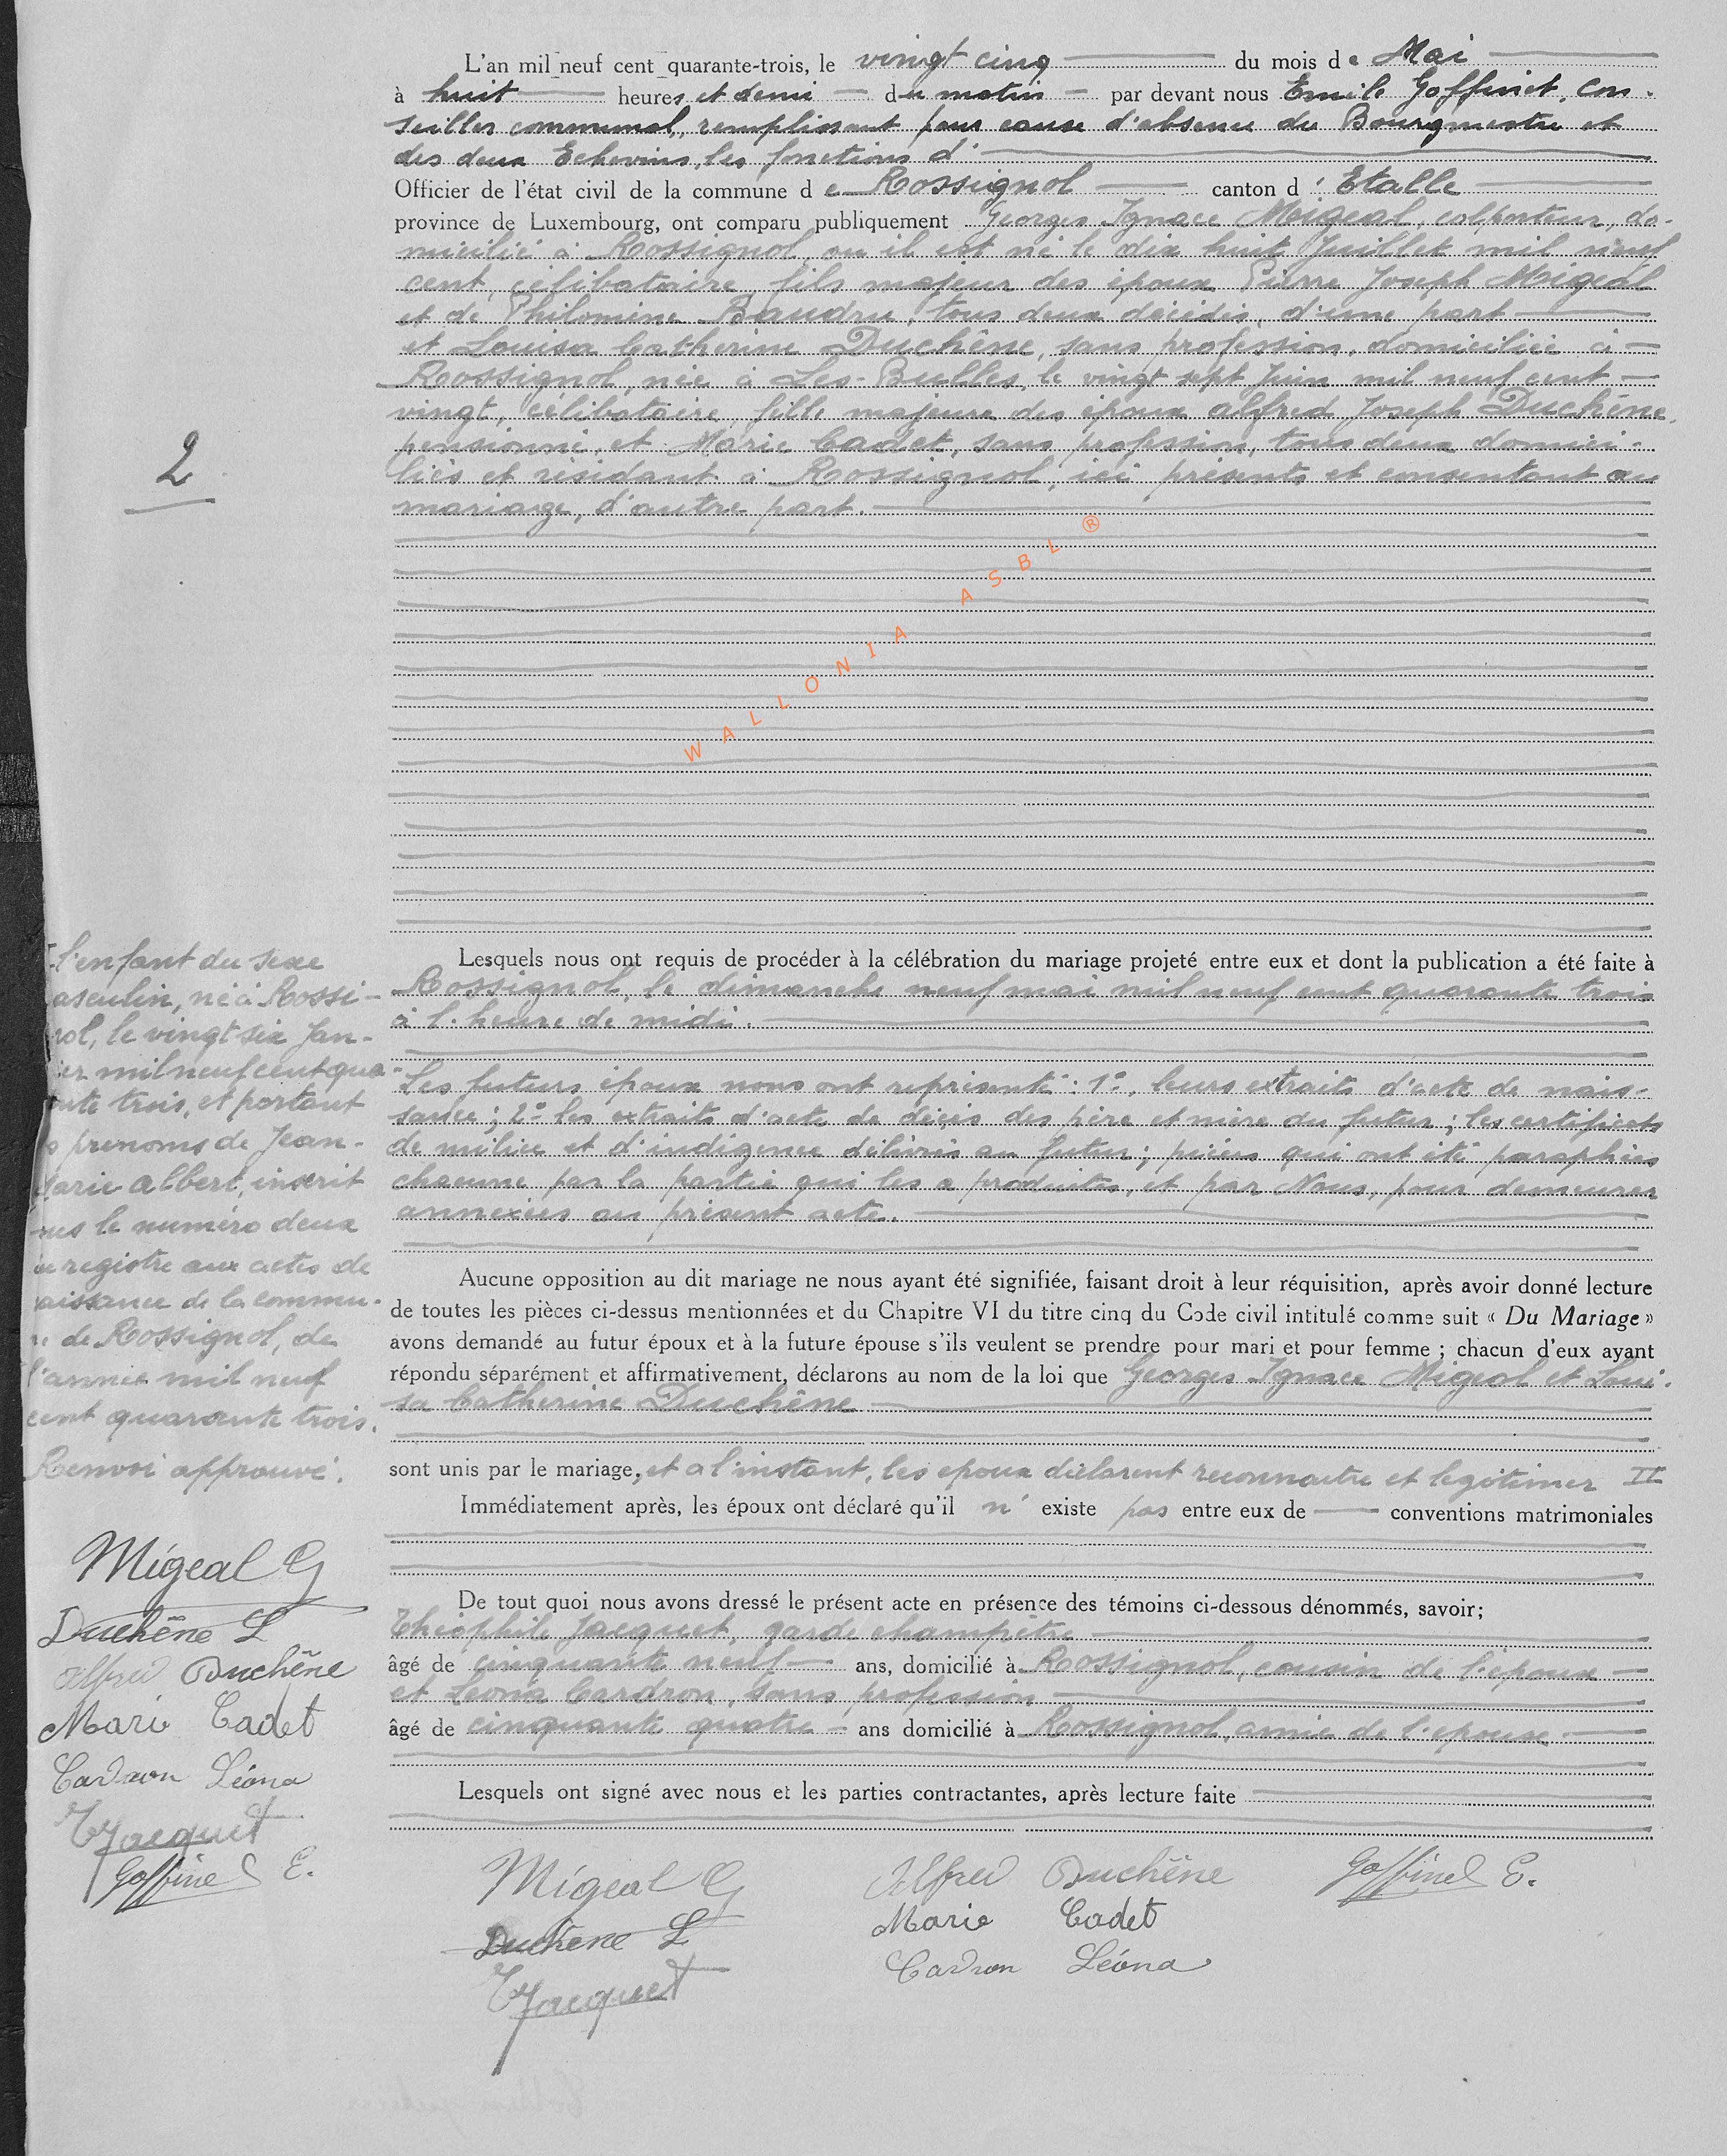 L'an mil neuf cent quarante-trois, le vingt cinq du mois de Mai
à huit heures et demi du matin par devant nous Emile Goffinet, con-
seiller communal, remplissant pour cause d'absence du Bourgmestre et
des deux Echevins, les fonctions d'
Officier de l'état civil de la commune de Rossignol canton d'Etalle
province de Luxembourg, ont comparu publiquement Georges Ignace Migeal, colporteur, do-
micilié à Rossignol, où il est né le dix huit Juillet mil neuf
cent, célibataire, fils majeur des époux Pierre Joseph Migeal
et de Philomène Baudru, tous deux décédés, d'une part
et Louisa Catherine Duchêne, sans profession, domiciliée à
Rossignol, née à Les-Bulles, le vingt sept Juin mil neuf cent
vingt, célibataire, fille majeure des époux Alfred Joseph Duchêne,
pensionné, et Marie Cadet, sans profession, tous deux domici-
liés et résidant à Rossignol, ici présents et consentant au
mariage, d'autre part.
2
WALLONIA ASBL ®
Lesquels nous ont requis de procéder à la célébration du mariage projeté entre eux et dont la publication a été faite à
Rossignol, le dimanche neuf mai mil neuf cent quarante trois
à l'heure de midi.
Les futurs époux nous ont représenté : 1° leurs extraits d'acte de nais-
sance ; 2° les extraits d'acte de décès des père et mère du futur ; les certificats
de milice et d'indigence délivrés au futur ; pièces qui ont été paraphées
chacune par la partie qui les a produites, et par Nous, pour demeurer
annexées au présent acte.
Aucune opposition au dit mariage ne nous ayant été signifiée, faisant droit à leur réquisition, après avoir donné lecture
de toutes les pièces ci-dessus mentionnées et du Chapitre VI du titre cinq du Code civil intitulé comme suit « Du Mariage »
avons demandé au futur époux et à la future épouse s'ils veulent se prendre pour mari et pour femme ; chacun d'eux ayant
répondu séparément et affirmativement, déclarons au nom de la loi que Georges Ignace Migeal et Loui-
sa Catherine Duchêne
sont unis par le mariage, et à l'instant, les époux déclarent reconnaitre et legitimer II
Immédiatement après, les époux ont déclaré qu'il n'existe pas entre eux de conventions matrimoniales
De tout quoi nous avons dressé le présent acte en présence des témoins ci-dessous dénommés, savoir;
Théophile Jacquet, garde champêtre
âgé de cinquante neuf ans, domicilié à Rossignol, cousin de l'époux
et Léona Cardron, sans profession
âgé de cinquante quatre ans domicilié à Rossignol, amie de l'épouse
Lesquels ont signé avec nous et les parties contractantes, après lecture faite
l'enfant du sexe
asculin, né à Rossi-
nol, le vingt six Jan-
ier mil neuf cent qua-
ante trois, et portant
s prénoms de Jean-
Marie Albert, inscrit
ous le numéro deux
du registre aux actes de
aissance de la commu-
ne de Rossignol, de
l'année mil neuf
cent quarante trois.
Renvoi approuvé.
Migeal G
Duchêne L
Alfred Duchêne
Marie Cadet
Cardron Léona
T Jacquet
Goffinet E.
Migeal G
Duchêne L
T Jacquet
Alfred Duchêne
Marie Cadet
Cardron Léona
Goffinet E.